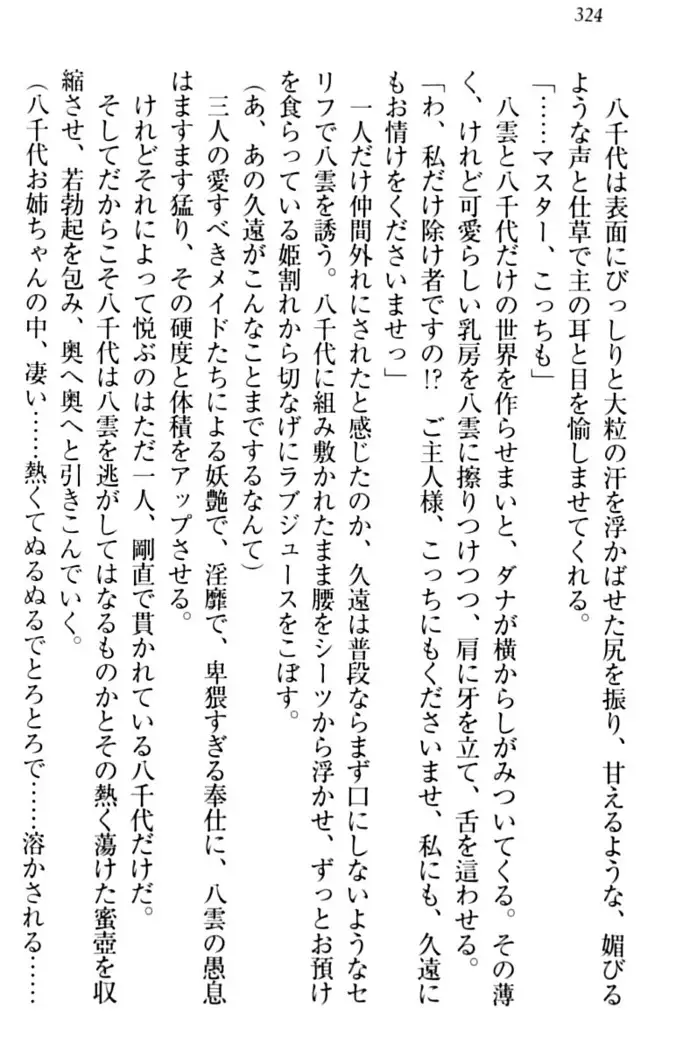 324
八千代は表面にびっしりと大粒の汗を浮かばせた尻を振り、甘えるような、媚びる
ような声と仕草で主の耳と目を愉しませてくれる。
「……マスター、こっちも」
八雲と八千代だけの世界を作らせまいと、ダナが横からしがみついてくる。その薄
く、けれど可愛らしい乳房を八雲に擦りつけつつ、肩に牙を立て、舌を這わせる。
「わ、私だけ除け者ですの!?　ご主人様、こっちにもくださいませ、私にも、久遠に
もお情けをくださいませっ」
一人だけ仲間外れにされたと感じたのか、久遠は普段ならまず口にしないようなセ
リフで八雲を誘う。八千代に組み敷かれたまま腰をシーツから浮かせ、ずっとお預け
を食らっている姫割れから切なげにラブジュースをこぼす。
(あ、あの久遠がこんなことまでするなんて)
三人の愛すべきメイドたちによる妖艶で、淫靡で、卑猥すぎる奉仕に、八雲の愚息
はますます猛り、その硬度と体積をアップさせる。
けれどそれによって悦ぶのはただ一人、剛直で貫かれている八千代だけだ。
そしてだからこそ八千代は八雲を逃がしてはなるものかとその熱く蕩けた蜜壺を収
縮させ、若勃起を包み、奥へ奥へと引きこんでいく。
(八千代お姉ちゃんの中、凄い……熱くてぬるぬるでとろとろで……溶かされる……